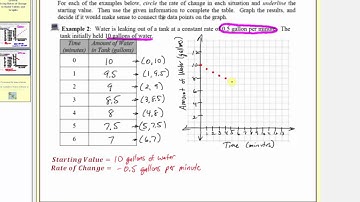 For each of the examples below, circle the rate of change in each situation and underline the
starting value. Then use the given information to complete the table. Graph the results, and
decide if it would make sense to connect the data points on the graph.
Example 2: Water is leaking out of a tank at a constant rate of 0.5 gallon per minute. The
tank initially held 10 gallons of water.
Time (minutes) Amount of Water in Tank (gallons)
0 10 → (0,10)
1 9.5 → (1,9.5)
2 9 → (2,9)
3 8.5 → (3,8.5)
4 8 → (4,8)
5 7.5 → (5,7.5)
6 7 → (6,7)
Amount of Water (gallons)
Time (minutes)
Starting Value = 10 gallons of water
Rate of Change = -0.5 gallons per minute